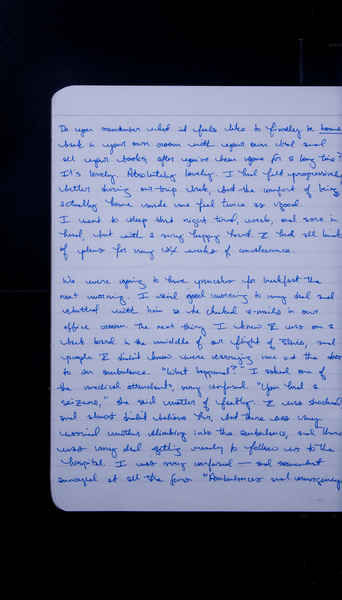 Do you remember what it feels like to finally be home
back in your own room with your own bed and
all your books, after you've been gone for a long time?
It's lovely. Absolutely lovely. I had felt progressively
better during our trip back, but the comfort of being
actually home made me feel twice as good.
I went to sleep that night tired, weak, and sore in
head, but with a very happy heart. I had all kinds
of plans for my six weeks of convalescence.
We were going to have pancakes for breakfast the
next morning. I said good morning to my dad and
chatted with him as he checked e-mails in our
office room. The next thing I knew I was on a
back board in the middle of our flight of stairs, and
people I didn't know were carrying me out the door
to an ambulance. "What happened?" I asked one of
the medical attendants, very confused. "You had a
seizure," she said matter of factly. I was shocked
and almost didn't believe her, but there was my
worried mother climbing into the ambulance, and there
was my dad getting ready to follow us to the
hospital. I was very confused — and somewhat
annoyed at all the fuss. "Ambulances and emergency